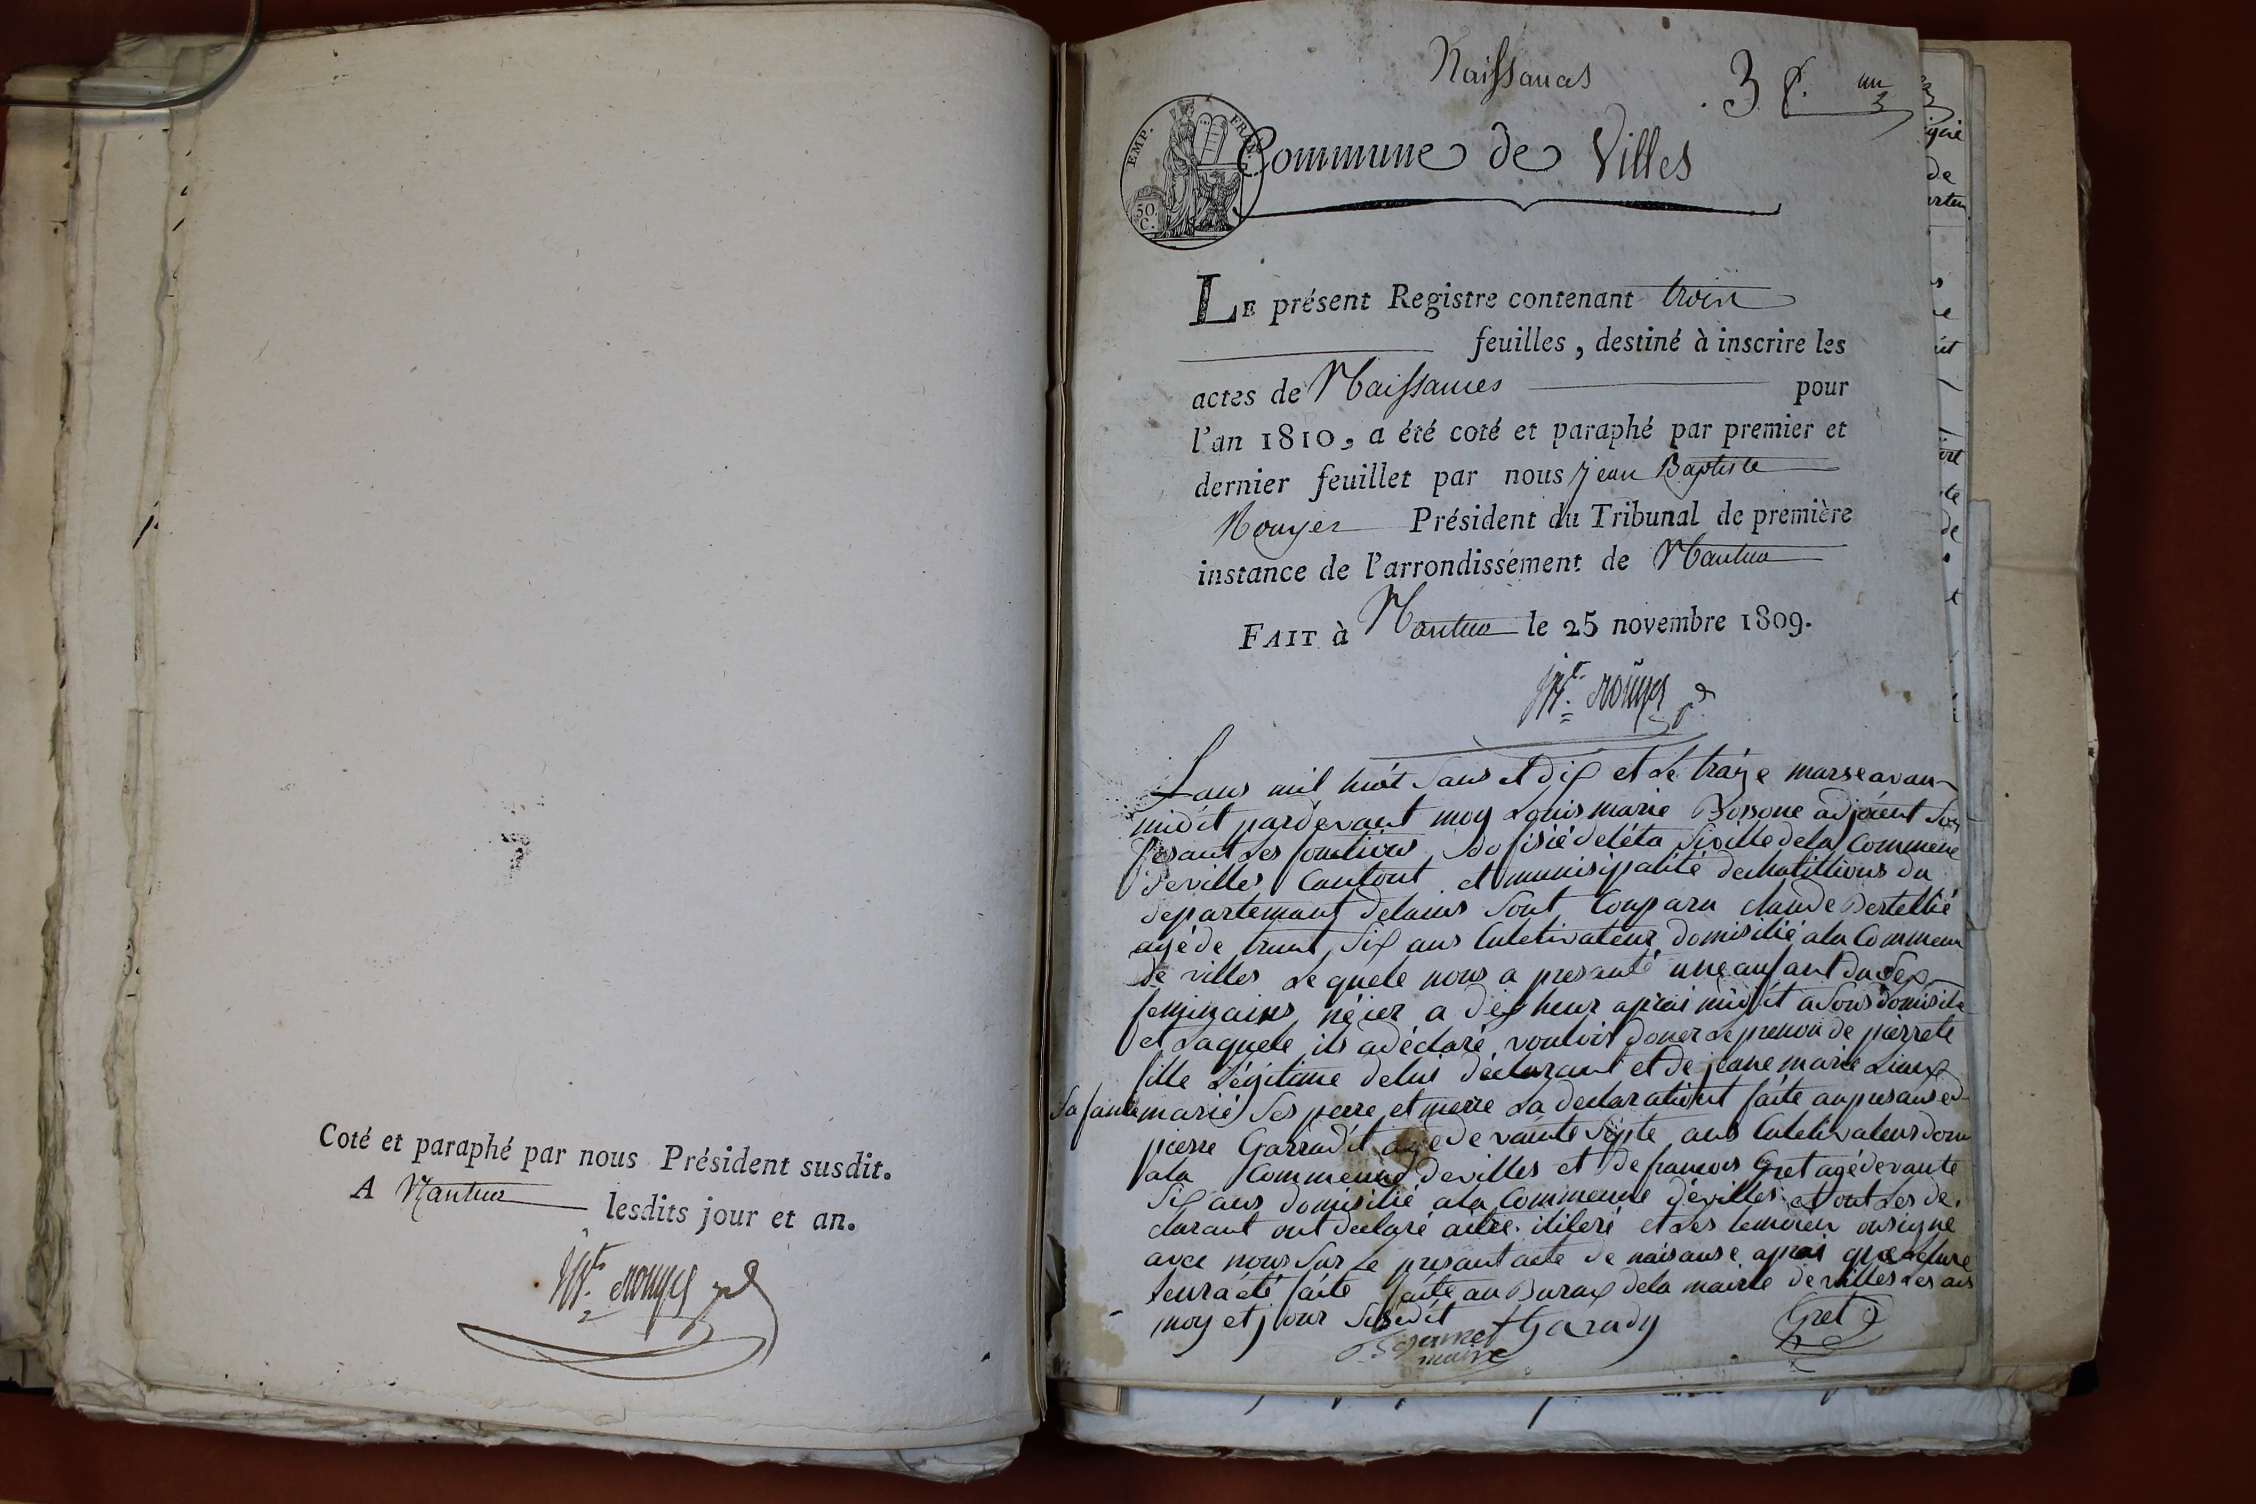 Coté et paraphé par nous Président susdit.
A Nantua lesdits jour et an.
Jn Bte Rouyer
Naissances
3 f. un
3
EMP. FRAN.
50 C.
Commune de Villes
LE présent Registre contenant trois
feuilles, destiné à inscrire les
actes de Naissances pour
l'an 1810, a été coté et paraphé par premier et
dernier feuillet par nous jean Baptiste
Rouyer Président du Tribunal de première
instance de l'arrondissement de Nantua
FAIT à Nantua le 25 novembre 1809.
Rouyer
Lans mil huit sans et dix et le traize marse avan
midit pardevant moy Louis marie Bossone adjoient
fesant les fontions do fisié deléta siville dela Commene
devilles Cantont et munisipalité dechatillions du
departemant delains sont Conparu claude Bertellié
agé de trant six ans Culetivateur domisilié ala Commene
de villes Lequele nous a presanté une anfant du sex
feminains néier a dix heur aprai midit a sons domisile
et Laquele ils adéclaré vouloir doner le prenon de pierrete
fille Légitime delui declarant et de jeane marie Lioux
sa fame marié ses perre et merre La declarationt faite anpresans de
pierre Garradit agé de vainte septe ans Culetivateur dom
ala Commenne devilles et de francois Gret agé devante
six ans domisilié ala Commenne dévilles et ont les de
clarant ont declaré aitre ilileré et les temoien onsigné
avec nous sur Le presant acte de naisanse aprai que Leture
leura été faite faite au Buraux dela mairie de villes Les ans
moy et jour susdit
maire
Garady
Gret